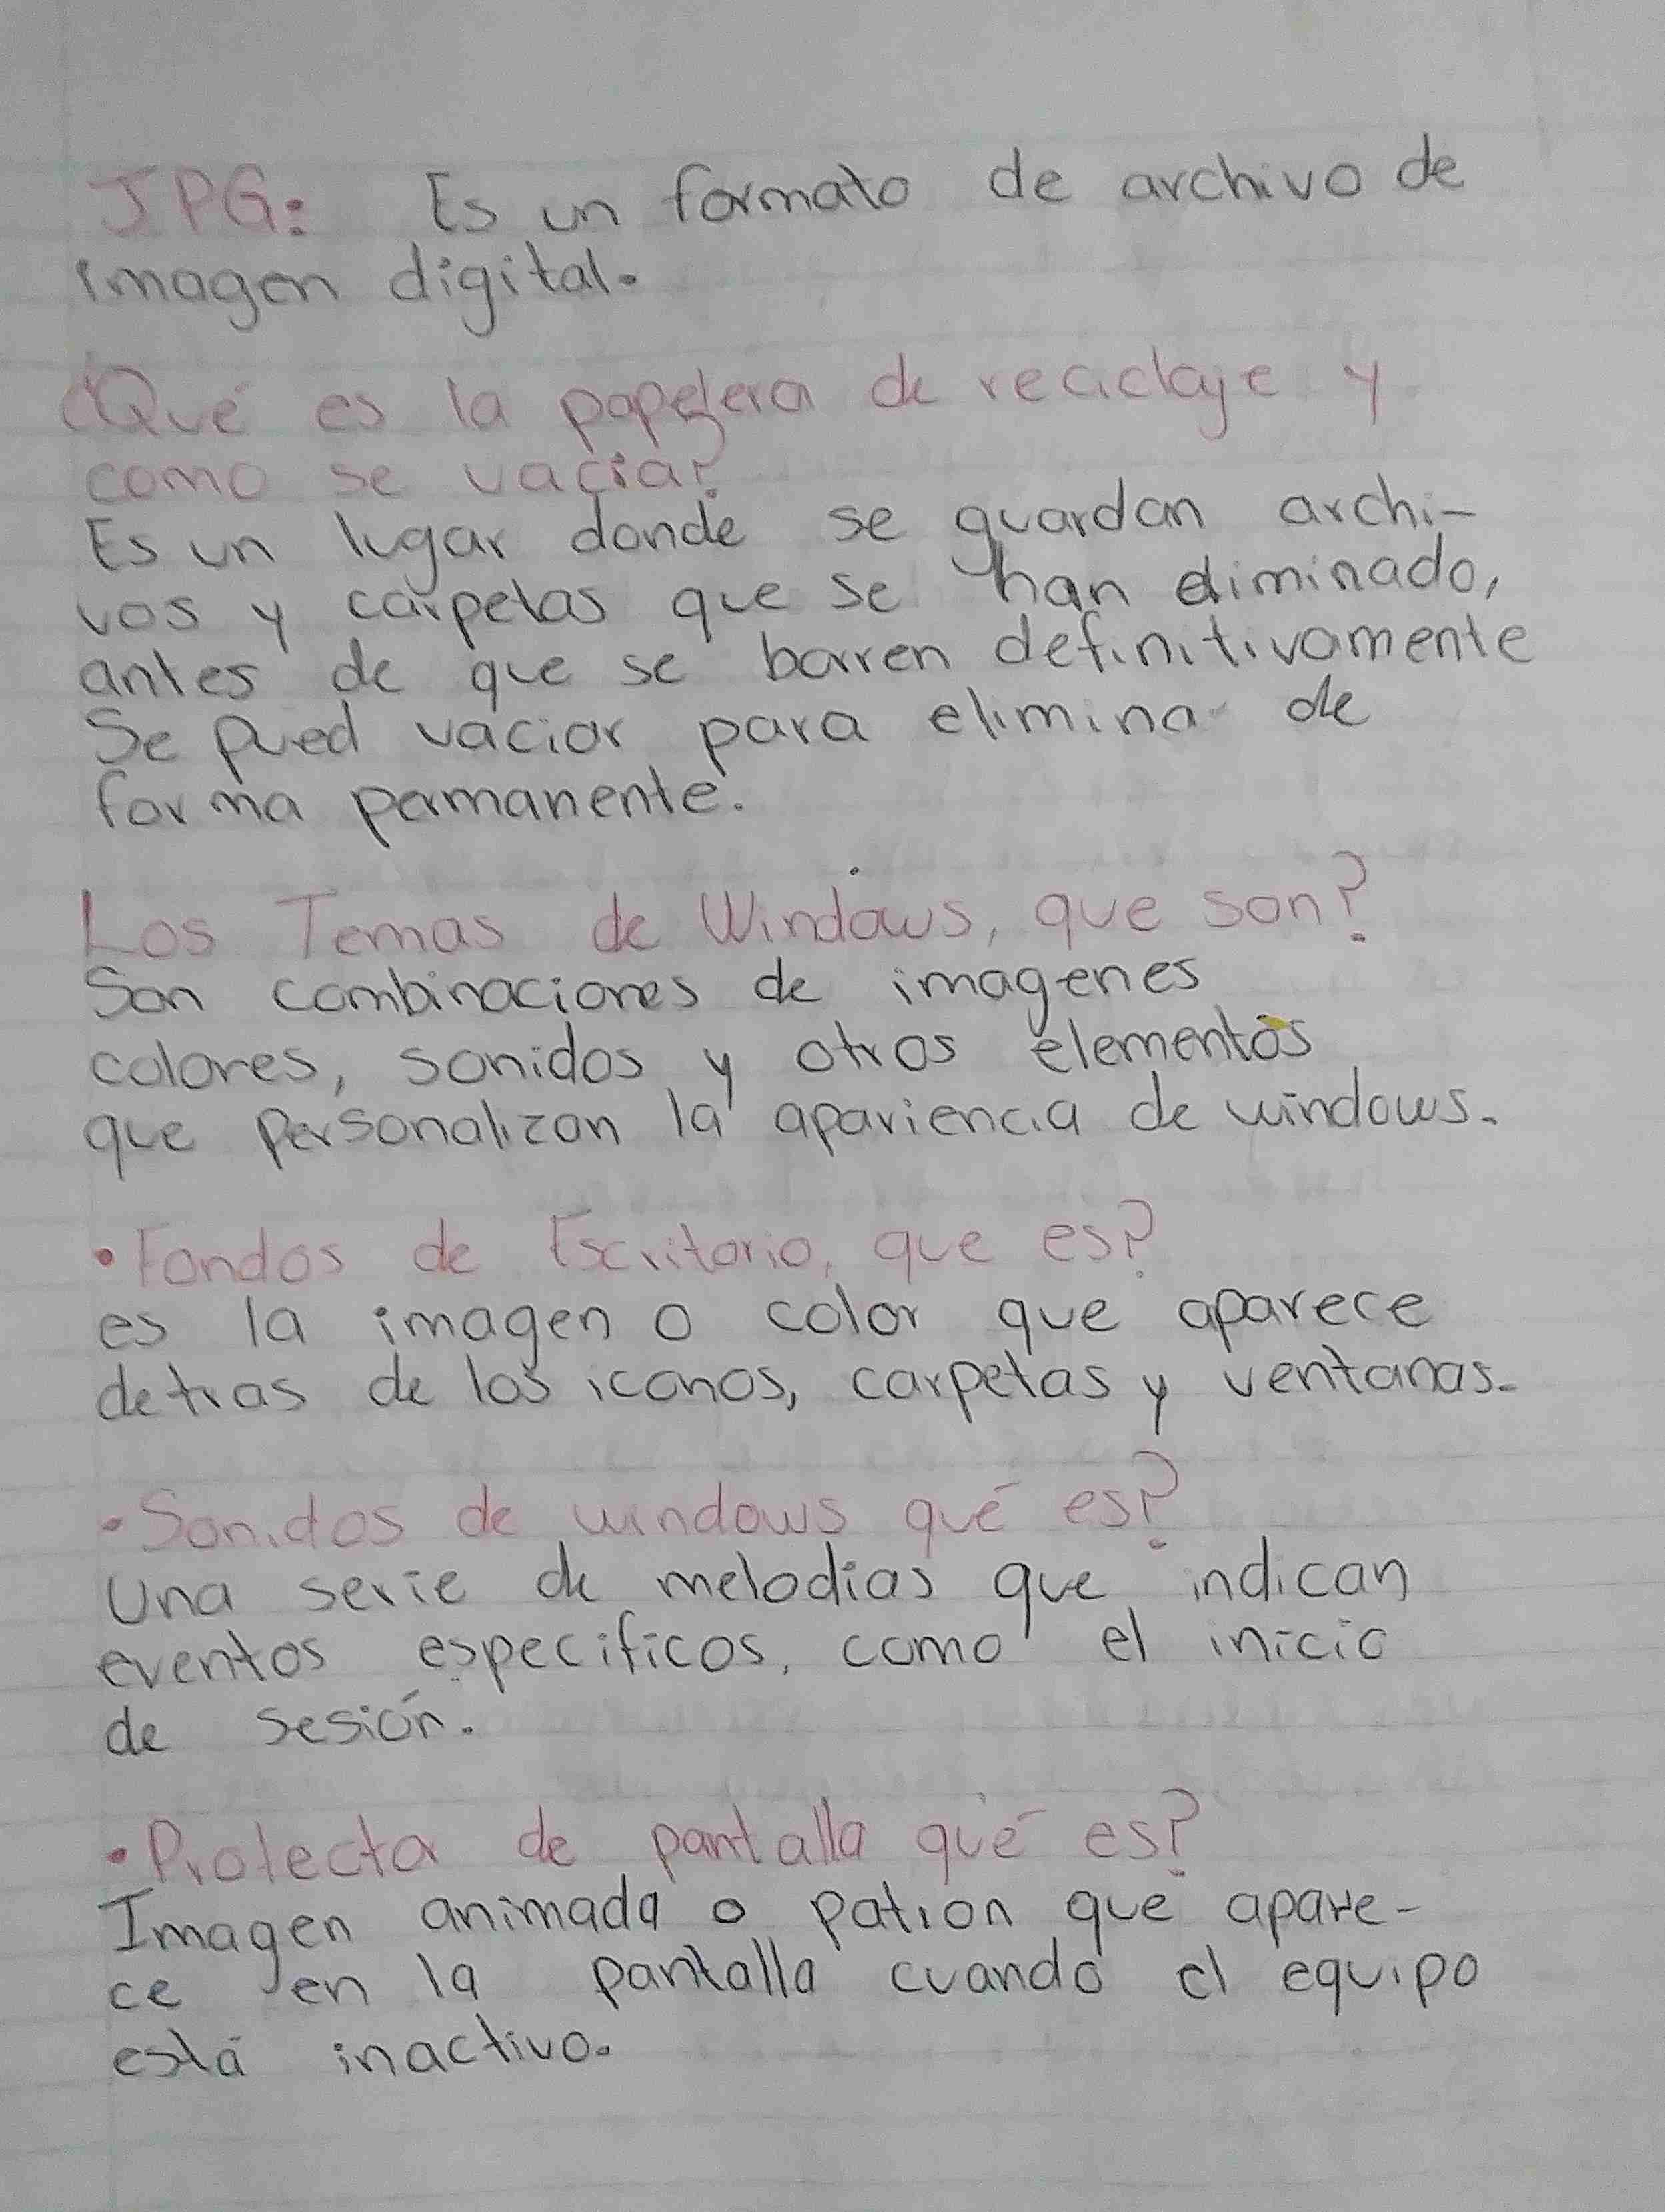 JPG: Es un formato de archivo de
imagen digital.
¿Qué es la papelera de reciclaje y
como se vacía?
Es un lugar donde se guardan archi-
vos y carpetas que se han eliminado,
antes de que se borren definitivamente
Se pued vaciar para elimina de
forma permanente.
Los Temas de Windows, que son?
Son combinaciones de imagenes
colores, sonidos y otros elementos
que personalizan la apariencia de windows.
• Fondos de Escritorio, que es?
es la imagen o color que aparece
detras de los iconos, carpetas y ventanas.
• Sonidos de windows qué es?
Una serie de melodías que indican
eventos especificos, como el inicio
de sesión.
• Protector de pantalla qué es?
Imagen animada o patron que apare-
ce en la pantalla cuando el equipo
está inactivo.